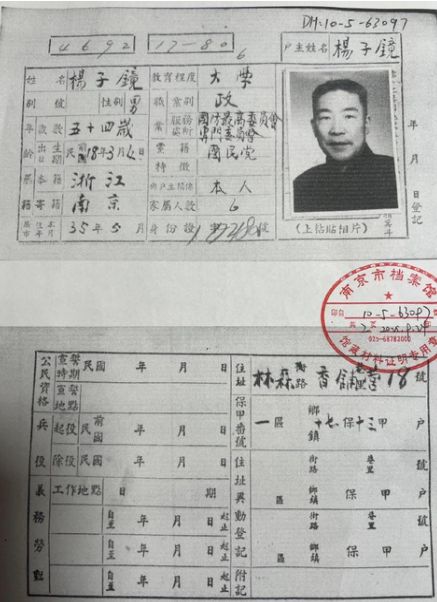 DH:10-5-63097
4692
17-80
6
戶主姓名 楊子鏡
姓名 楊子鏡 教育程度 大學
別號 性別 男 職業 業別 政
年齡 歲數 五十四歲 服務處所 國防最高委員會專門委員會
出生日期 民前 18年3月4日 黨籍 國民党
特徵
籍貫 本籍 浙江 與戶主關係 本人
寄籍 南京 家屬人數 6
35年5月 身份證 號
(上粘貼相片)
年月日登記
南京市档案馆
10-5-63097
2025.9.24
025-68782000
馆藏材料证明专用章
公民資格 宣誓時期 民國 年 月 日
宣誓地點
住址 林森路 香鋪營 18號
兵役 起役 民前國 年 月 日
保甲番號 一區 鄉鎮 十七保十三甲 戶
除役 民國 年 月 日
住址 街路 巷里 號
義務勞動 工作地點 日期
區 鄉鎮 保 甲 戶
自至 年 月 日 起止
異動登記 街路 巷里 號
自至 年 月 日 起止
區 鄉鎮 保 甲 戶
自至 年 月 日 起止
附記